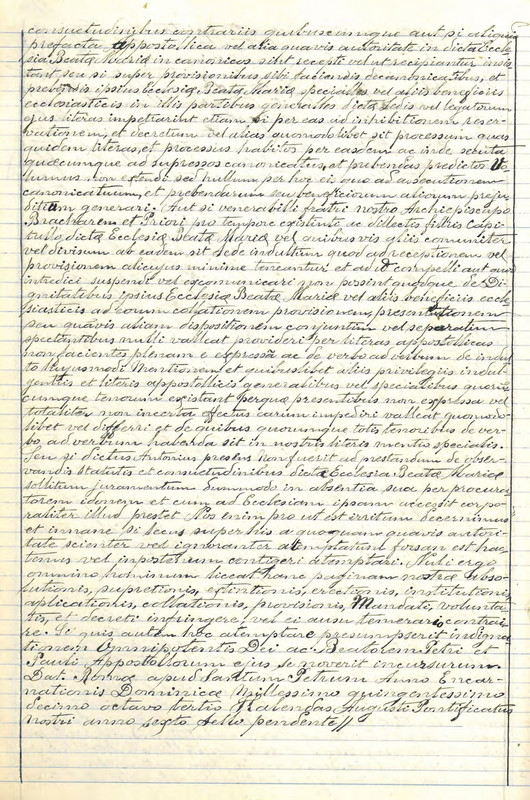 consuetudinibus contrariis quibuscumque aut si aliqui
prefacta appostolica vel alia quavis autoritate in dicta Eccle
sia Beatæ Mariæ in canonicos sint recepti vel ut recipiantur insis
tant seu si super provisionibus sibi faciendis de canonicatibus, et
prebendis ipsius Eclesiæ Beatæ Mariæ speciales vel aliis beneficiis
ecclesiasticis in illis partibus generales dictæ Sedis vel legatorum
ejus literas impettarint etiam si per eas ad inhibitionem reser-
vationem, et decretum vel alias quomodo libet sit processum quas
quidem literas, et processus habitos per easdem ac inde secuta
quæcumque ad supressos canonicatus, et prebendas predictos
lumus non estendi sed nullum per hoc eis quo ad assecutionem
canonicatuum, et prebendarum seu beneficiorum aliorum preju
ditium generari. Aut si venerabilli fratri nostro Archiepiscupo
Bracharem et Priori pro tempore existente ac dillectis filiis Capi-
tullo dictæ Ecclesiæ Beatæ Mariæ vel quibus vis aliis comuniter
vel divisum ab eadem sit Sede indultum quod ad receptionem vel
provisionem alicujus minime teneantur et ad id compelli aut quod
intredici suspendi vel excomunicari non possint quodque de Di-
gnitatibus ipsius Ecclesiæ Beatæ Mariæ vel aliis beneficiis eccle
siasticis ad eorum colationem provisionem, presentationem
seu quavis aliam dispositionem conjuntim vel separatim
spectantibus nulli valleat provideri per literas appostolicas
non facientes plenam e expressa ac de verbo ad verbum de indul
to hujusmodi Mentionem et quibus libet aliis privilegiis indul
gentiis et literis appostollicis generalibus vel specialibus quorum
cumque tenorum existant per quæ presentibus non expressa vel
totaliter non incerta effectus earum impediri valleat quomodo
libet vel differri et de quibus quorumque totis tenoribus de ver-
bo, ad verbum habenda sit in nostris literis mentio specialis.
Seu si dictus Antonius presens non fuerit ad prestandum de obser-
vandis statutis et consuetudinibus dictæ Ecclesia Beatæ Mariæ
sollitum juramentum Dummodo in absentia sua per procura
torem idoneum et cum ad Ecclesiam ipsam accessit corpo-
raliter illud prestet. Nos enim pro ut est irritum decernimus
et innane si secus super his a quoquam quavis autori-
tate scienter vel ignoranter attemptatum forsan est hac-
tenus vel impostorum contigeri atemptari. Nuli ergo
omnino hominum liceat hanc paginam nostræ abso-
lutionis, supretionis, extintionis, erectionis, institutionis,
aplicationis, collationis, provisionis, Mandati, volunta-
tis, et decreti infringere, vel ei ausu temerario contrai-
re. Si quis autem hoc atemptare presumpserit indigna-
tionem Omnipotentis Dei ac Beatorem Petri et
Pauli Appostolorum ejus se noverit incursurum
Dat. Romæ apud Sanctum Petrum Anno Encar-
nationis Dominicæ Millessimo quingentessimo
decimo octavo tertio Kalendas Augusti Pontificatus
nostri anno sexto pendente //